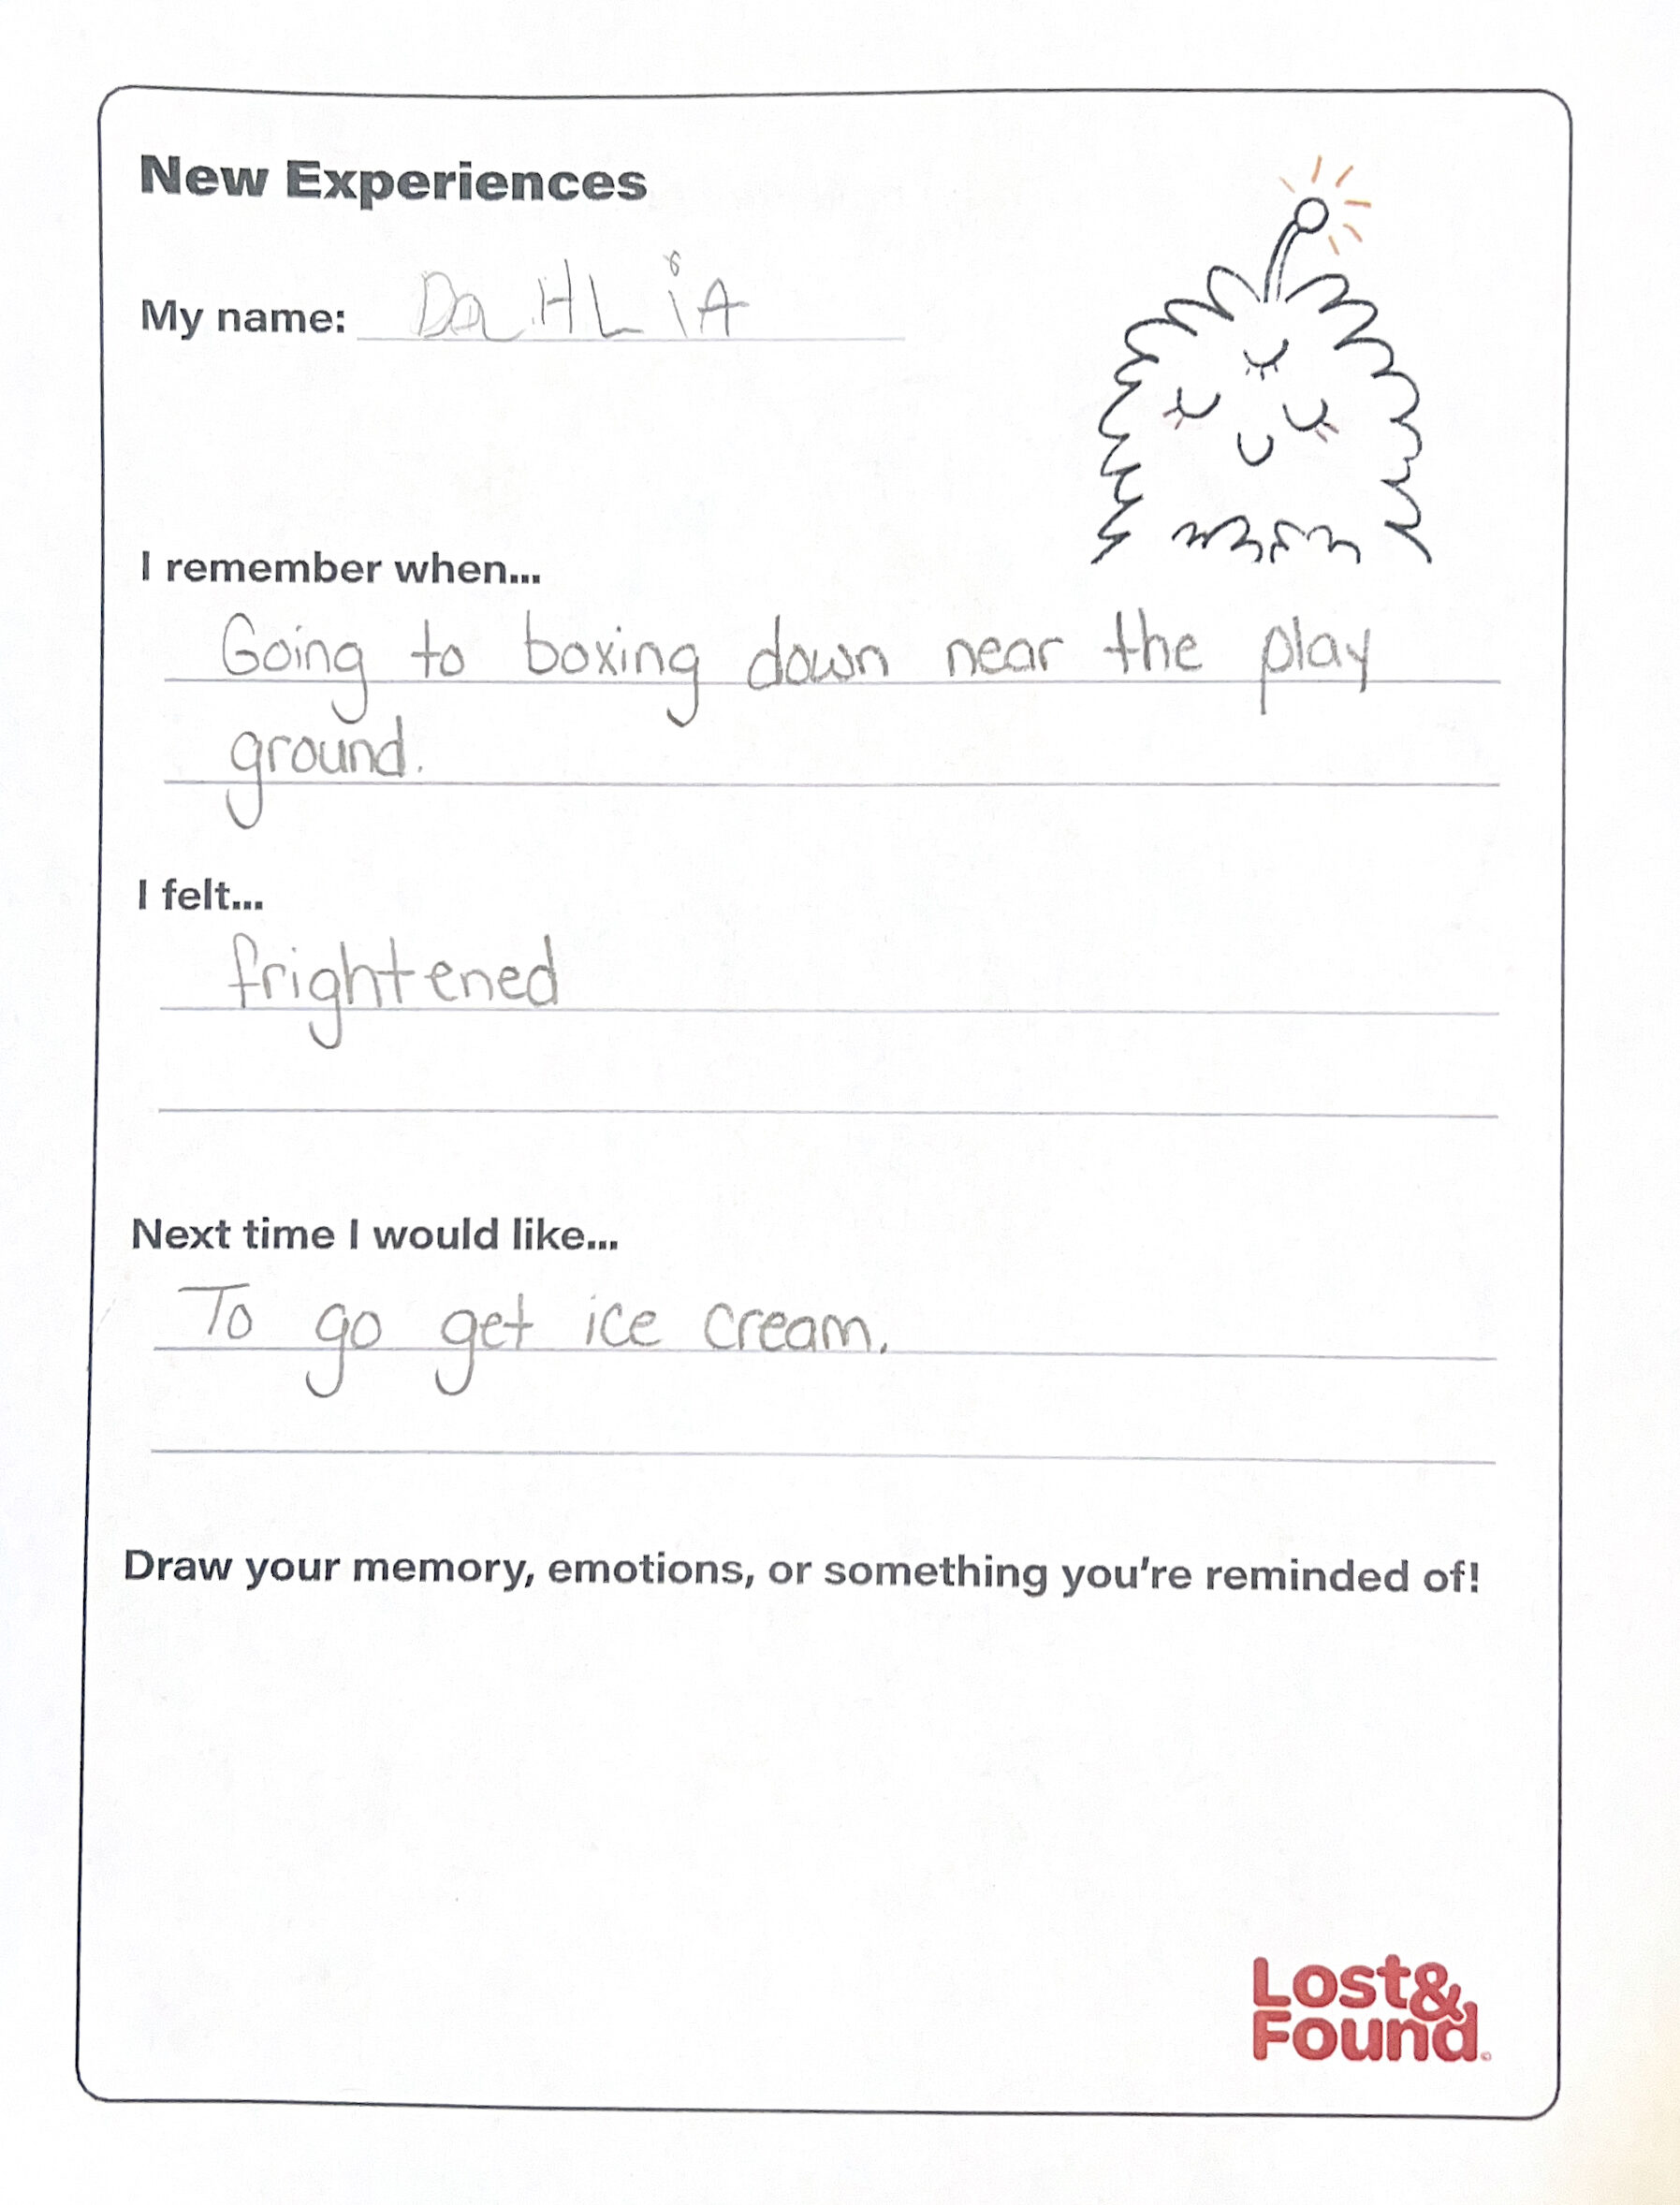 New Experiences
My name: DaHLiA
I remember when...
Going to boxing down near the play
ground.
I felt...
frightened
Next time I would like...
To go get ice cream.
Draw your memory, emotions, or something you're reminded of!
Lost&
Found